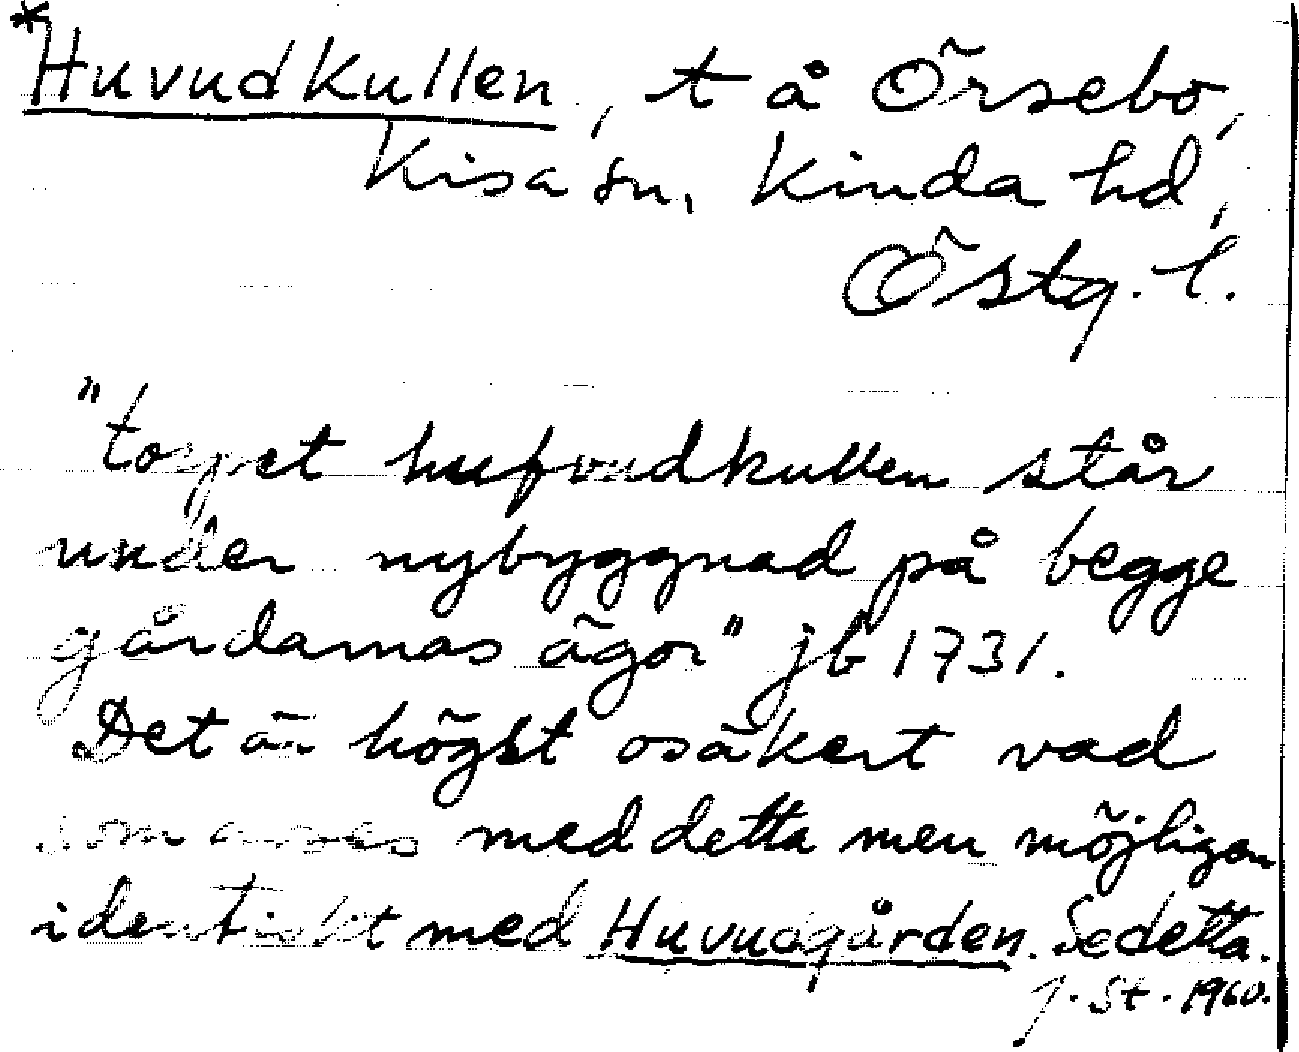 *Huvudkullen, t å Örsebo,
Kisa sn, Kinda hd,
Östg. l.
"torpet hufvudkullen står
under nybyggnad på begge
gårdarnas ägor" jb 1731.
Det är högst osäkert vad
som avses med detta men möjligen
identiskt med Huvudgården. Se detta.
J. St. 1960.